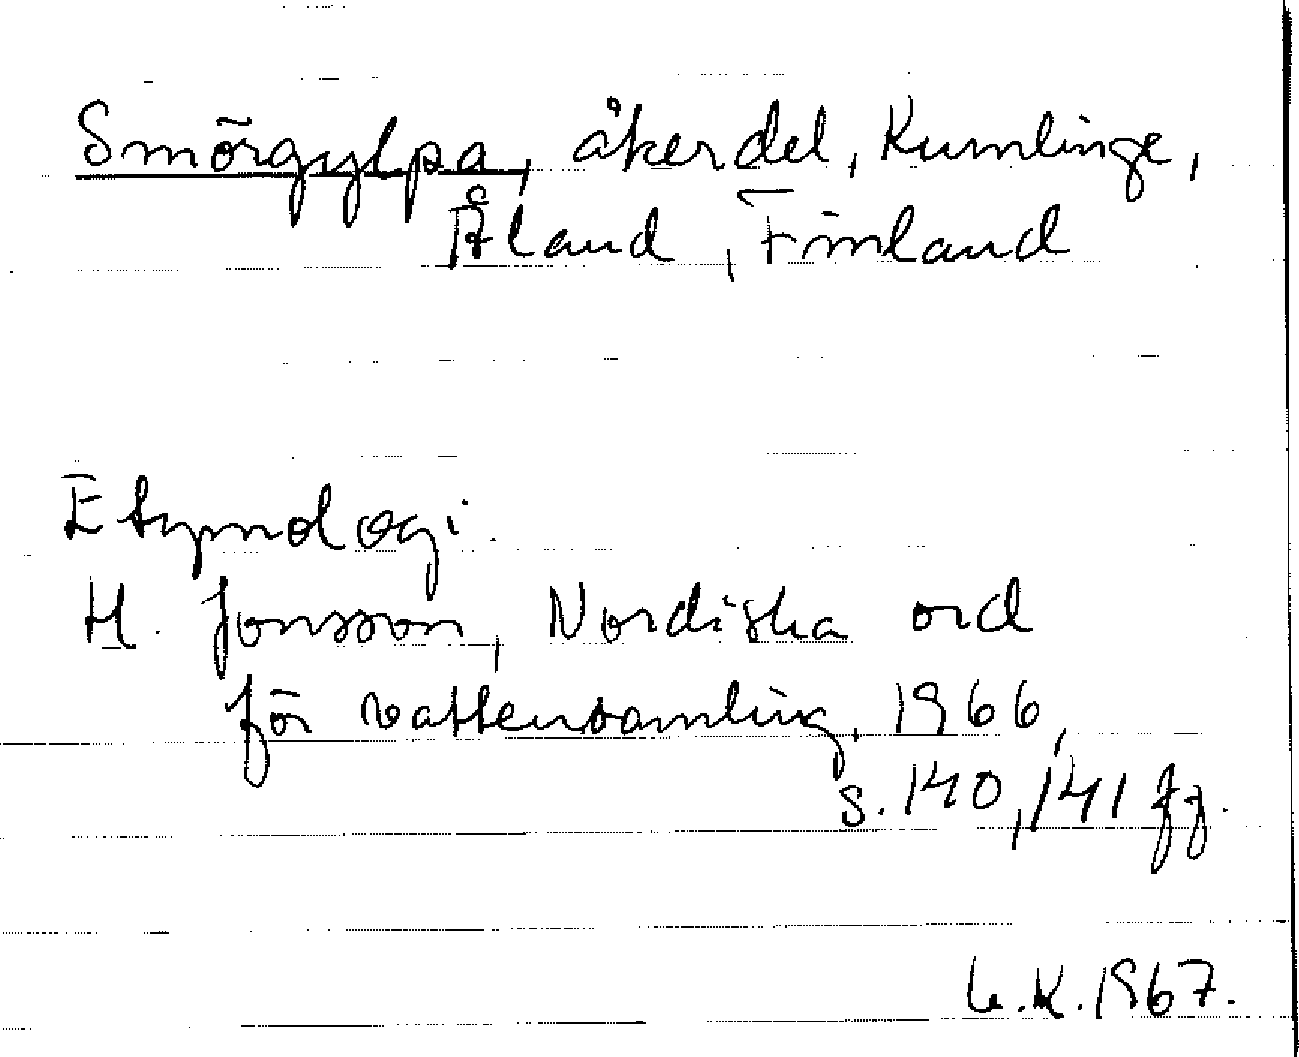 Smörgylpa, åkerdel, Kumlinge,
Åland, Finland
Etymologi.
H. Jonsson, Nordiska ord
för vattensamling, 1966,
s. 140, 141 ff.
K. 1967.